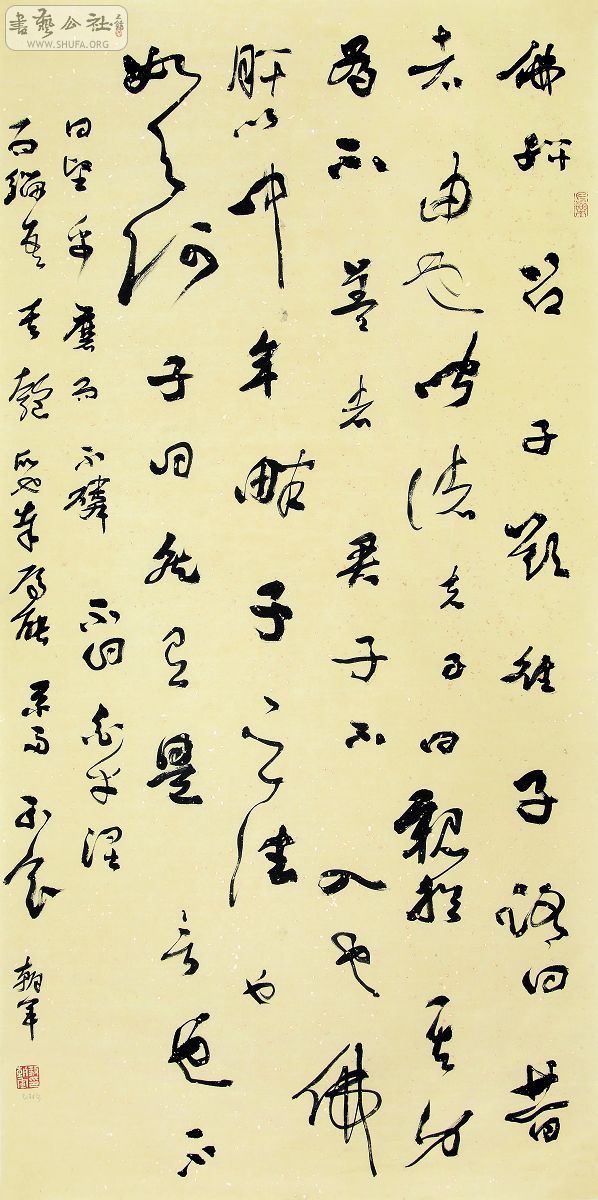 書藝公社
WWW.SHUFA.ORG
佛肸召子欲往子路曰昔
者由也聞諸夫子曰親於其身
為不善者君子不入也佛
肸以中牟畔子之往也
如之何子曰然有是言也不
曰堅乎磨而不磷不曰白乎涅
而緇吾豈匏瓜也哉焉能系而不食